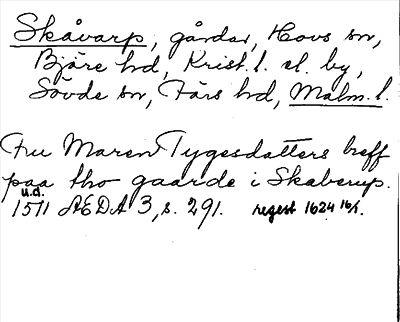 Skåvarp, gårdar, Hovs sn,
Bjäre hd, Krist. l. el. by,
Sövde sn, Färs hd, Malm. l.
Fru Maren Tygesdatters breff
paa tho gaarde i Skaberup.
u.d.
1511 ÆDA 3, s. 291. regest 1624 16/1.